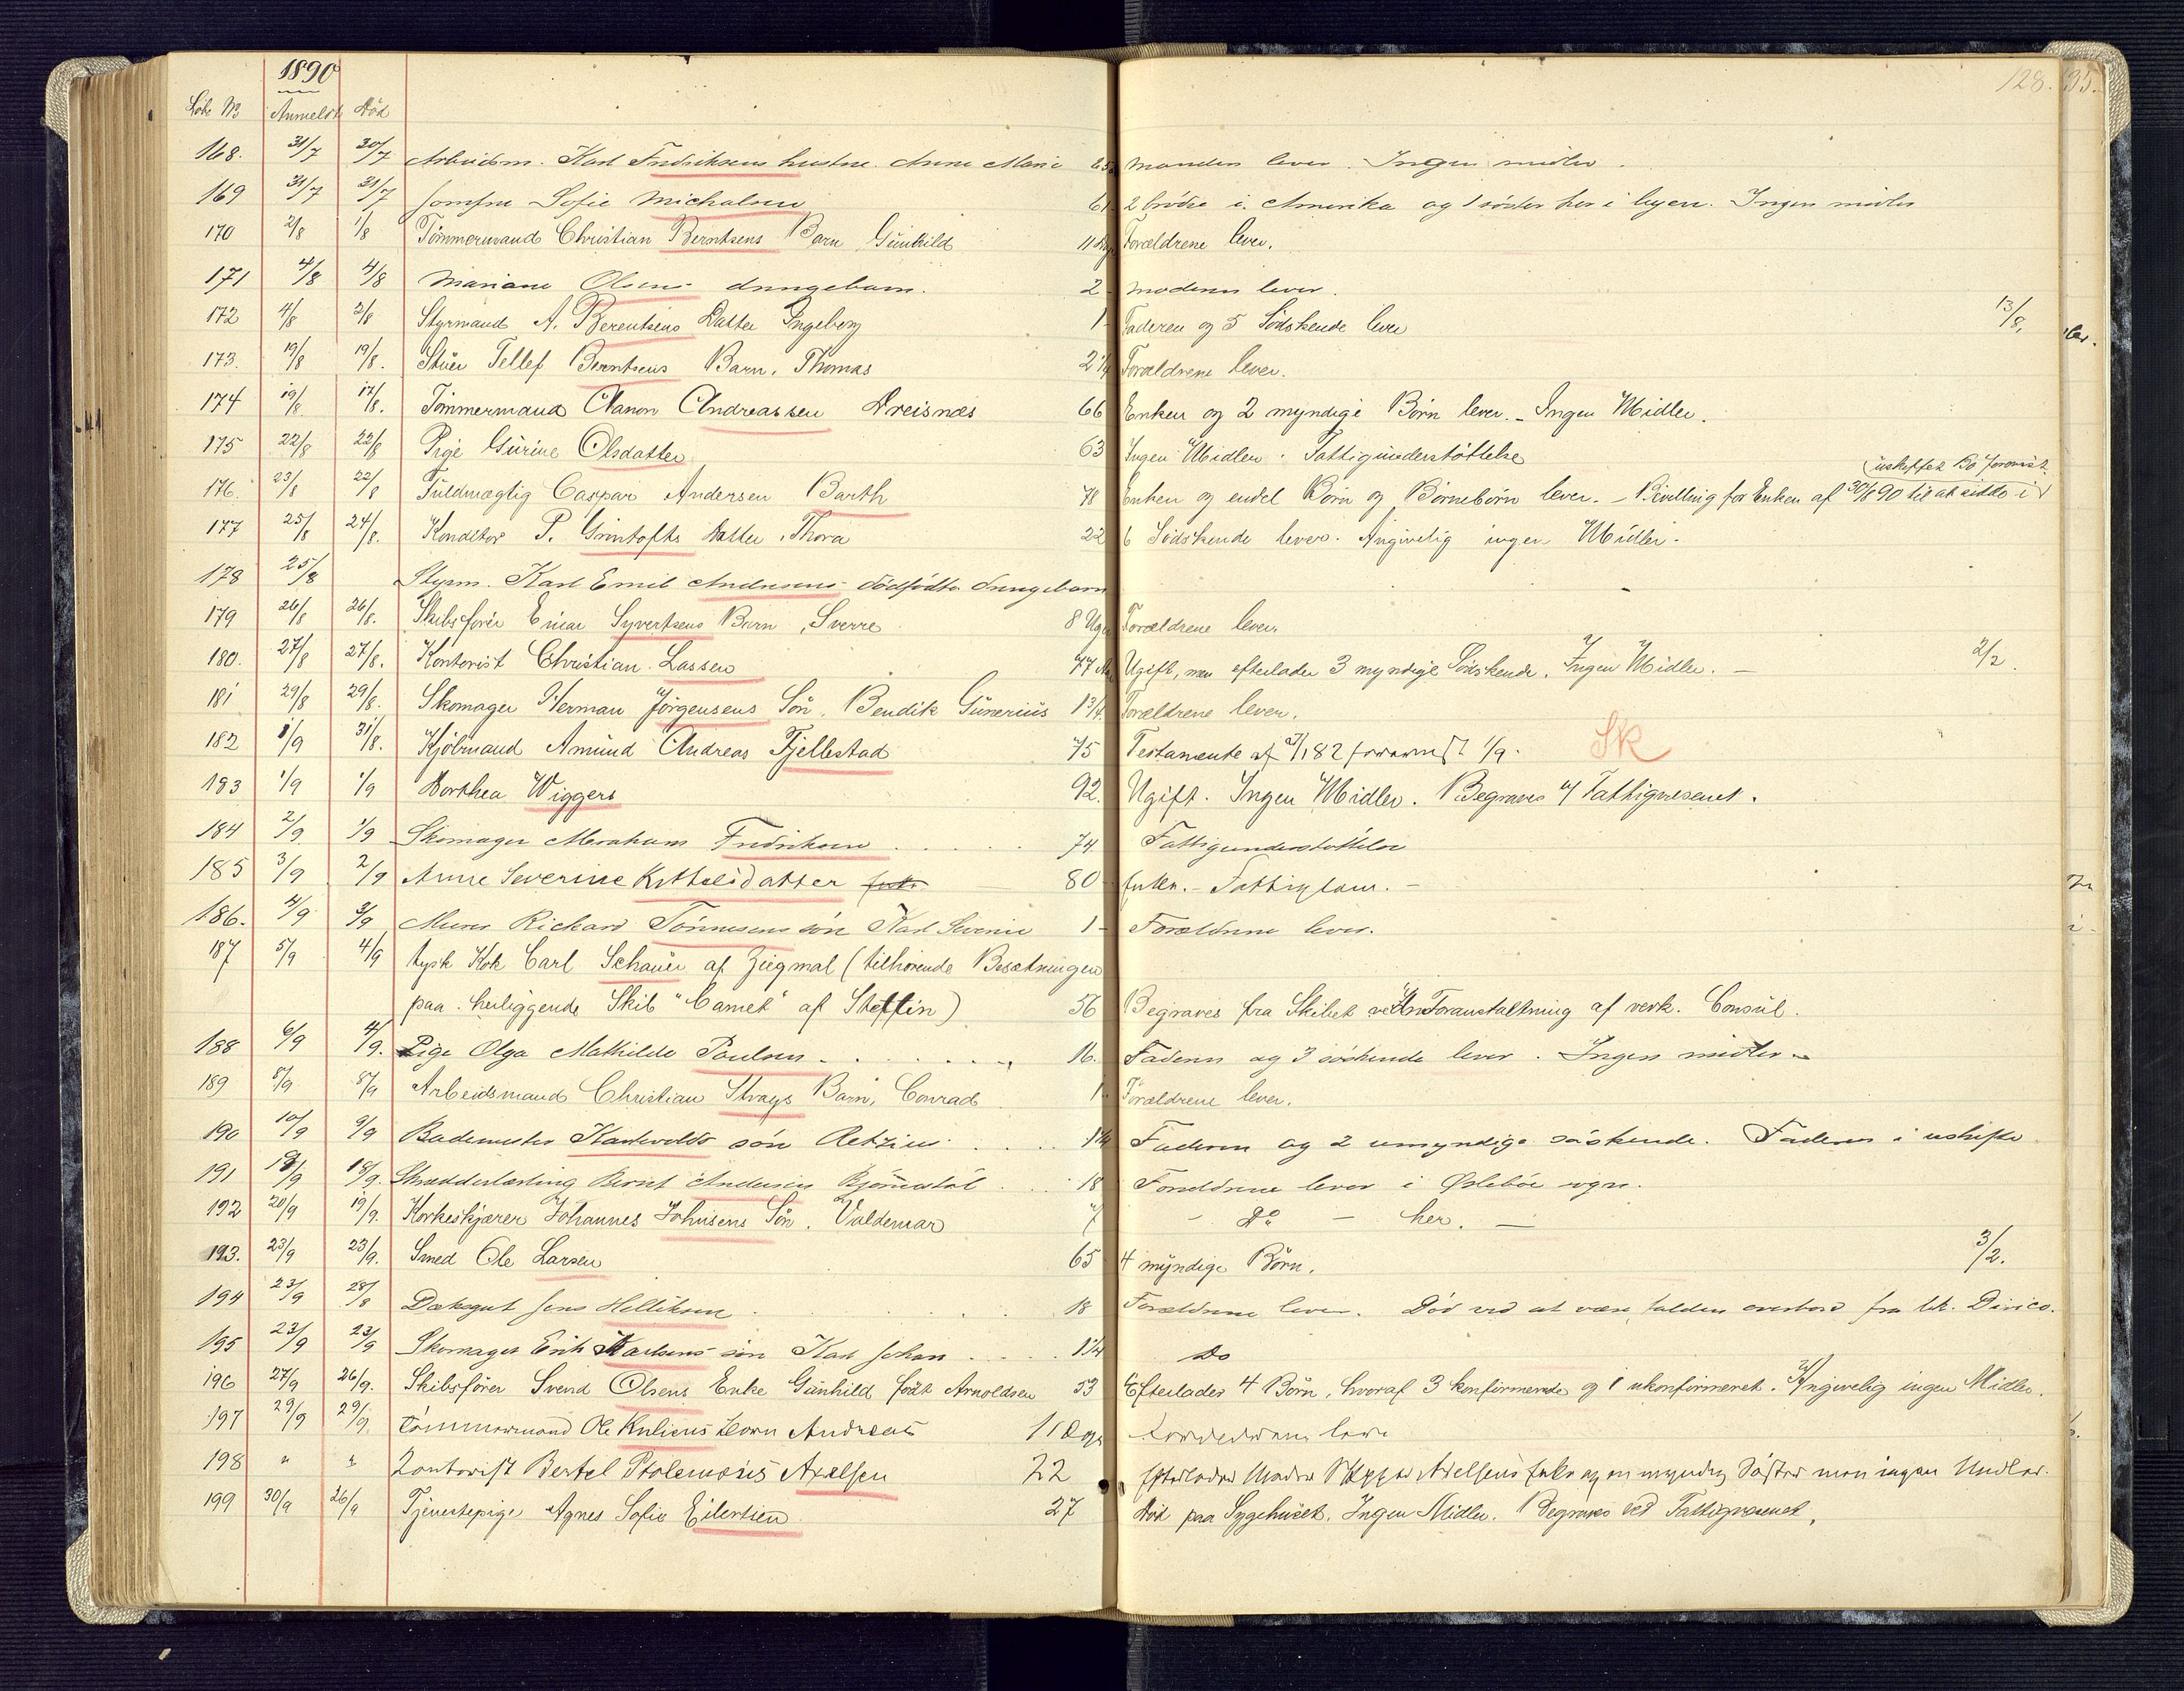 1890
128.
Løbe No Anmeldt Død
168. 31/7 30/7 Arbeidsm. Karl Fredriksens hustru Anne Marie 65 Manden lever. Ingen midler.
169 31/7 31/7 Jomfru Sofie Michalsen 61 2 brödre i Amerika og 1 söster her i byen. Ingen midler
170 2/8 1/8 Tömmermand Christian Berntsens Barn Günhild 11 Dage Forældrene lever.
171 4/8 4/8 Mariane Olsens drengebarn. 2 - Moderen lever.
172 4/8 2/8 Styrmand A. Berentsens Datter Ingeborg 1 - Faderen og 5 Södskende lever 13/8,
173. 19/8 19/8. Stüer Tellef Berntsens Barn, Thomas 2 1/4 Forældrene lever.
174 19/8 17/8. Tömmermand Aanon Andreassen Dreisnæs 66 Enken og 2 myndige Börn lever. - Ingen Midler.
175 22/8 22/8 Pige Gürine Olsdatter 63 Ingen Midler. Fattigünderstöttelse
uskiftet Bo forevist.
176. 23/8 22/8 Füldmægtig Caspar Andersen Barth 78 Enken og endel Börn og Börnebörn lever. - Bevilling for Enken af 30/8 90 til at sidde i
177 25/8 24/8. Konditor P. Grintofts Datter, Thora 22 6 Södskende lever. Angivelig ingen Midler.
178 25/8 Styrm. Karl Emil Andersens dödfödte drengebarn
179 26/8 26/8. Skibsförer Einar Syvertsens Barn, Sverre 8 Uger Forældrene lever.
180. 27/8 27/8. Kontorist Christian Lassen 77 Ugift, men efterlader 3 myndige Södskende. Ingen Midler. - 2/2.
181 29/8 29/8. Skomager Herman Jörgensens Sön, Bendik Günerius 1 3/4. Forældrene lever.
182 1/9 31/8. Kjöbmand Amünd Andreas Fjellestad 75 Testamente af 182 forevist 1/9. SK
183 1/9 1/9 Dorthea Wiggers 92. Ugift. Ingen Midler. Begraves af Fattigvæsenet.
184 2/9 1/9 Skomager Abraham Fredriksen 74 Fattigunderstöttelse
185 3/9 2/9 Anne Severine Kittelsdatter 80 Enke. - Fattiglem. -
186. 4/9 3/9 Murer Richard Tönnesens sön Karl Severin 1 - Forældrene lever.
187 5/9 4/9 tysk Kok Carl Schauer af Ziegmal (tilhörende Besætningen
paa herliggende Skib "Camet" af Stettin) 56 Begraves fra Skibet ved Foranstaltning af vedk. Consül.
188 6/9 4/9. Pige Olga Mathilde Paulsen 16. Faderen og 3 söskende lever. Ingen midler
189 8/9 8/9 Arbeidsmand Christian Strays Barn, Conrad 1 - Forældrene lever.
190 10/9 9/9 Bademester sön Retzius 1 1/4 Faderen og 2 umyndige söskende. Faderen i uskifte
191 19/9 18/9. Skrædderlærling Bernt Andersen 18 Forældrene lever i Øslebø sogn.
192 20/9 19/9. Korkeskjærer Johannes Johnsens Sön, Valdemar 7 - Do - her. -
193. 23/9 23/9. Smed Ole Larsen 65 4 myndige Börn. 3/2.
194 23/9 28/8 Dæksgut Jens Helliksen 18 Forældrene lever. Död ved at være falden overbord fra Divico.
195 23/9 23/9 Skomager Erik Karlsens sön Karl Johan 1 1/4 Do
196 27/9 26/9. Skibsförer Svend Olsens Enke Günhild födt Arnoldsen 53 Efterlader 4 Börn, hvoraf 3 konfirmerede og 1 ukonfirmeret. Angivelig ingen Midler.
197 29/9 29/9. Tömmermand Ole Barn Andreas 11 Dage Forældrene lever
198 " " Kontorist Bertel Ptolemæus Axelsen 22 Efterlader Moder Axelsens Enke og en myndig Söster men ingen Midler.
199 30/9 26/9 Tjenestepige Agnes Sofie Eilertsen 27 Död paa Sygehüset. Ingen Midler. Begraves ved Fattigvæsenet.